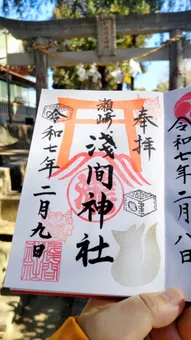 奉拝
瀬崎
浅間神社
令和七年二月九日
令和七年二月八日